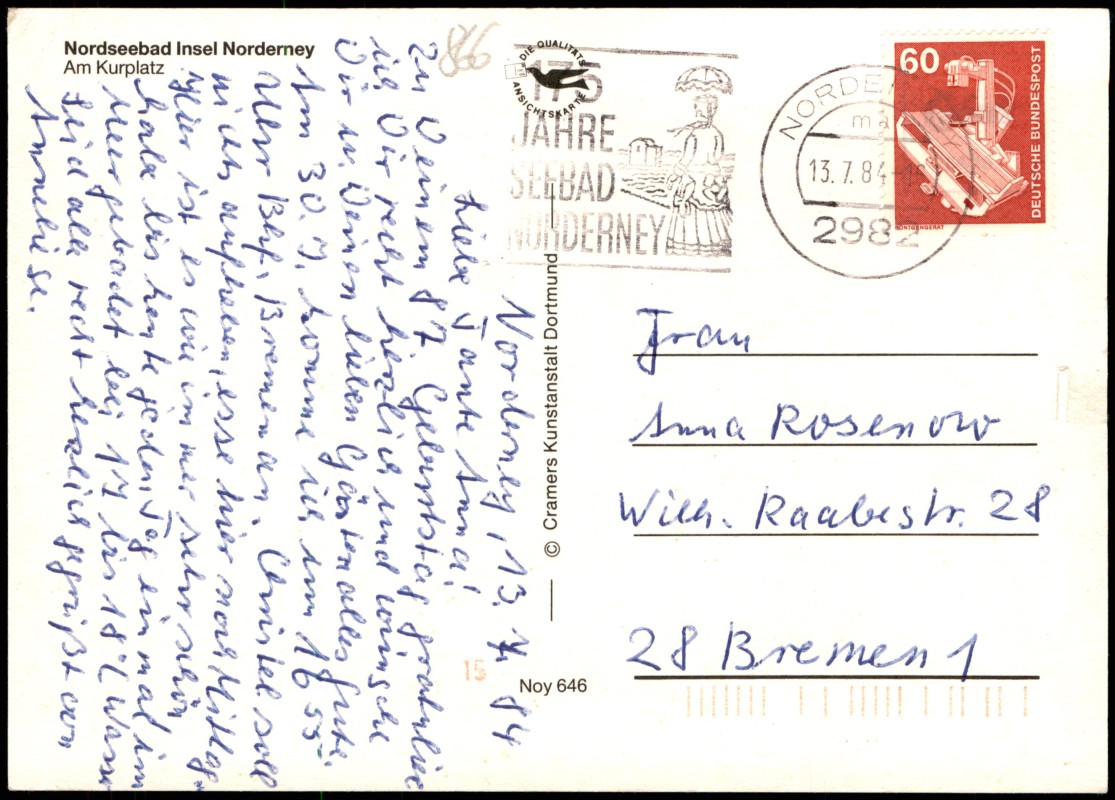 Nordseebad Insel Norderney
Am Kurplatz
866
DIE QUALITÄTS
ANSICHTSKARTE
175
JAHRE
SEEBAD
NORDERNEY
NORDERNEY
13.7.84
2982
60
DEUTSCHE BUNDESPOST
RÖNTGENGERÄT
Norderney, 13. 7. 84
Liebe Tante Anna!
Zu Deinem 87. Geburtstag gratuliere
ich Dir recht herzlich und wünsche
Dir u. Deinen lieben Gästen alles Gute.
Am 30. 7. komme ich um 16 55
über Bhf. Bremen an. Christel soll
nichts aufheben, esse hier noch Mittag.
Hier ist es wie immer sehr schön
habe bis heute jeden Tag einmal im
Meer gebadet bei 17 bis 18°C Wasser
Seid alle recht herzlich gegrüßt von
Anneliese.
© Cramers Kunstanstalt Dortmund
15
Noy 646
Frau
Anna Rosenow
Wilh. Raabestr. 28
28 Bremen 1